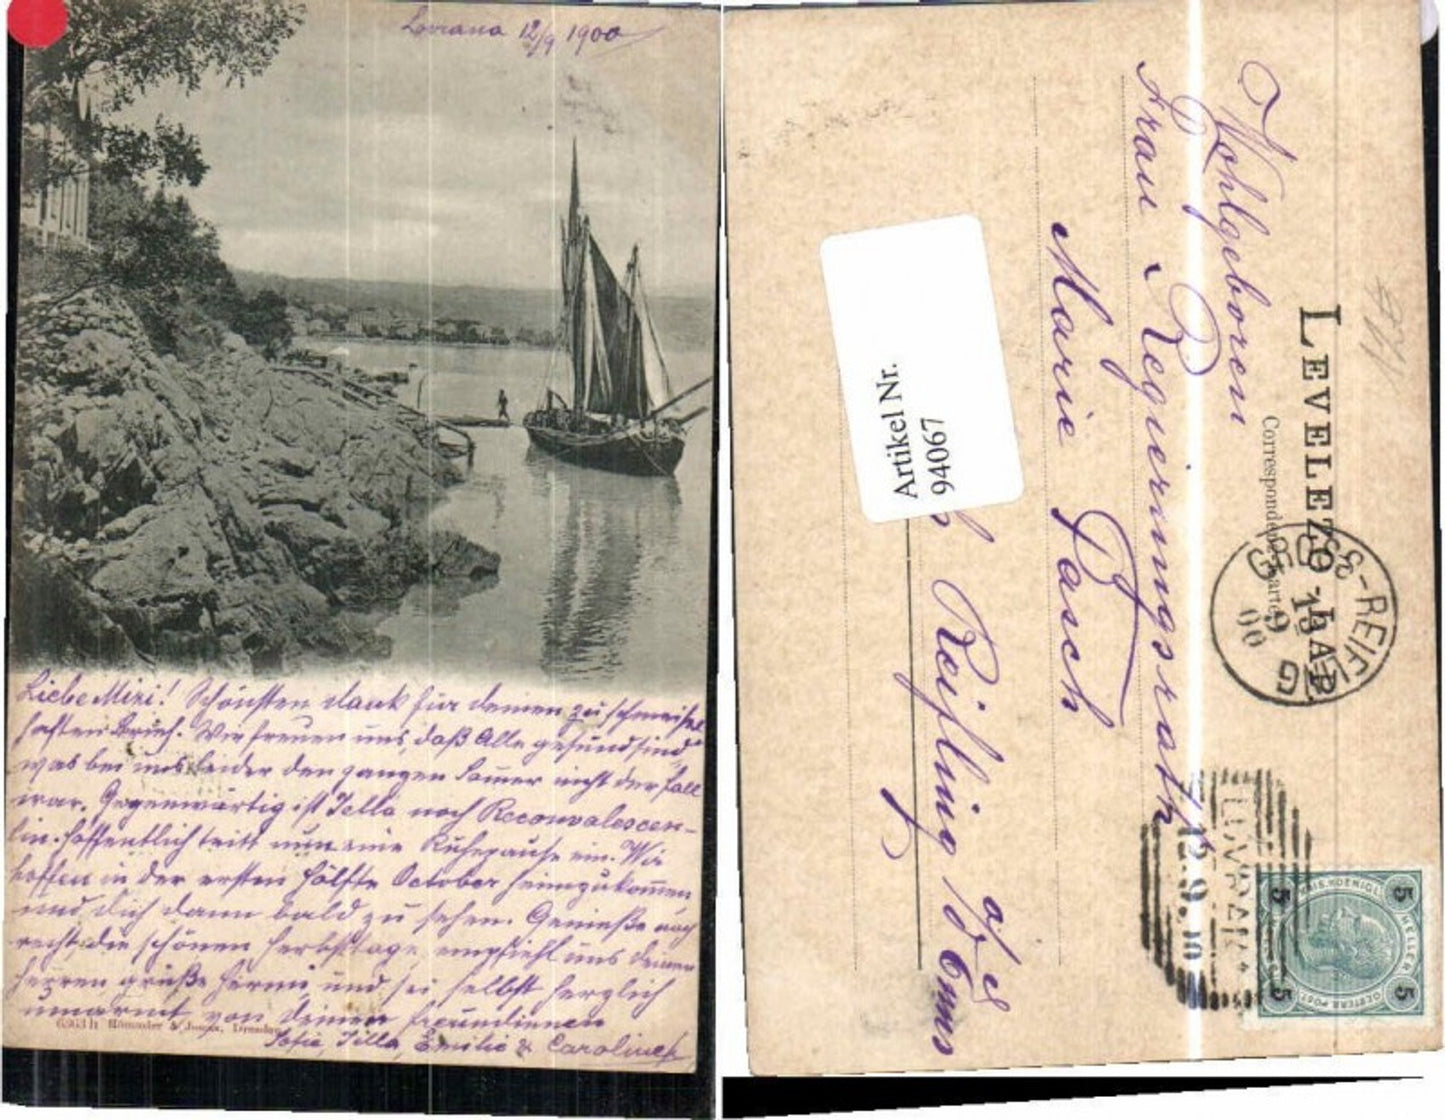 Lovrana 12/9 1900
Liebe Mizi! Schönsten dank für deinen zu schmeichel
haften Brief. Wir freuen uns, daß Alle gesund sind,
was bei uns leider den ganzen Sommer nicht der Fall
war. Gegenwärtig ist Tilla noch Reconvalescen-
tin. Hoffentlich tritt nun eine Ruhepause ein. Wir
hoffen in der ersten Hälfte October heimzukommen
und dich dann bald zu sehen. Genieße noch
recht die schönen Herbsttage, empfiehl uns deinem
Herren grüße Hermi, und sei selbst herzlich
umarmt von deinen Freundinnen
Sofie, Tilla, Emilie & Caroline
6363 h Römmler & Jonas, Dresden
LEVELEZŐ-LAP
Correspondenz-Karte
Wohlgeboren
Frau Regierungsrath
Marie Pasch
Reifling a/d Enns
Artikel Nr.
94067
REIFLING
13 9 00
LOVRANA
12.9.
5 HELLER 5
KAIS. KOENIGL.
OESTERR. POST